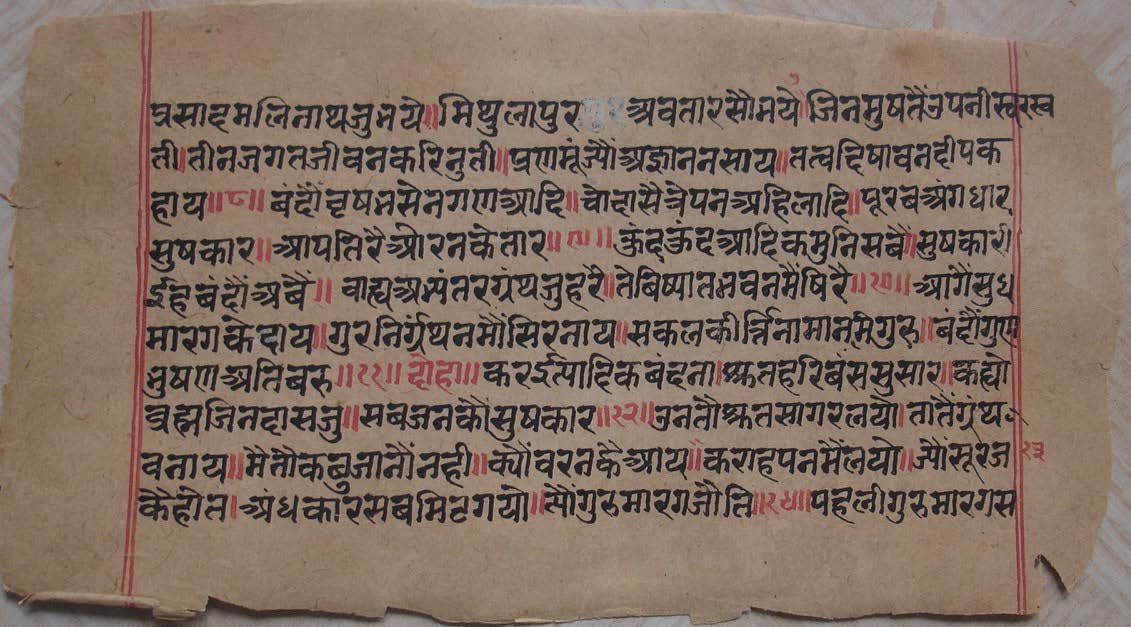 प्रसादमलिनाथजुभये॥मिथुलापुर अवतारसौभये॥जिनमुषतैंउपनीस्वरस्व
ती॥तीनजगतजीवनकरिनुती॥प्रणमूंज्यौंअज्ञाननसाय॥तत्वदिषावनदीपक
हाय॥८॥बंदौंवृषभसेनगणआदि॥चौदासैत्रेपनअहिलादि॥पूरबअंगधार
सुषकार॥आपतिरैऔरनकेतार॥९॥कुंदकुंदआदिकमुनिसबौं॥सुषकारी
ईहबंदौंअबैं॥वाह्यअभ्यंतरगृंथजुहरै॥तेबिष्यातभवनमैंषिरै॥१०॥आगैंसुध
मारगकेदाय॥गुरनिर्गृंथनमौंसिरनाय॥सकलकीर्त्तिनामा गुरु॥बंदौंगुण
भुषणअतिबरु॥११॥दोहा॥करईत्यादिकबंदना॥श्रुतहरिबंससुसार॥कह्यो
ब्रह्मजिनदासजु॥सबजनकौंसुषकार॥१२॥उनतौश्रुतसागरलयौ॥तातैंगृंथ
वनाय॥मैतौकबुजानौंनही॥क्यौंवरनकैआय॥ कराहपनमैंलयो॥ज्यौंसूरज
१३
कैहोत॥अंधकारसबमिटगयो॥त्यौंगुरुमारगजौति॥१४॥पहलीगुरुमारगस